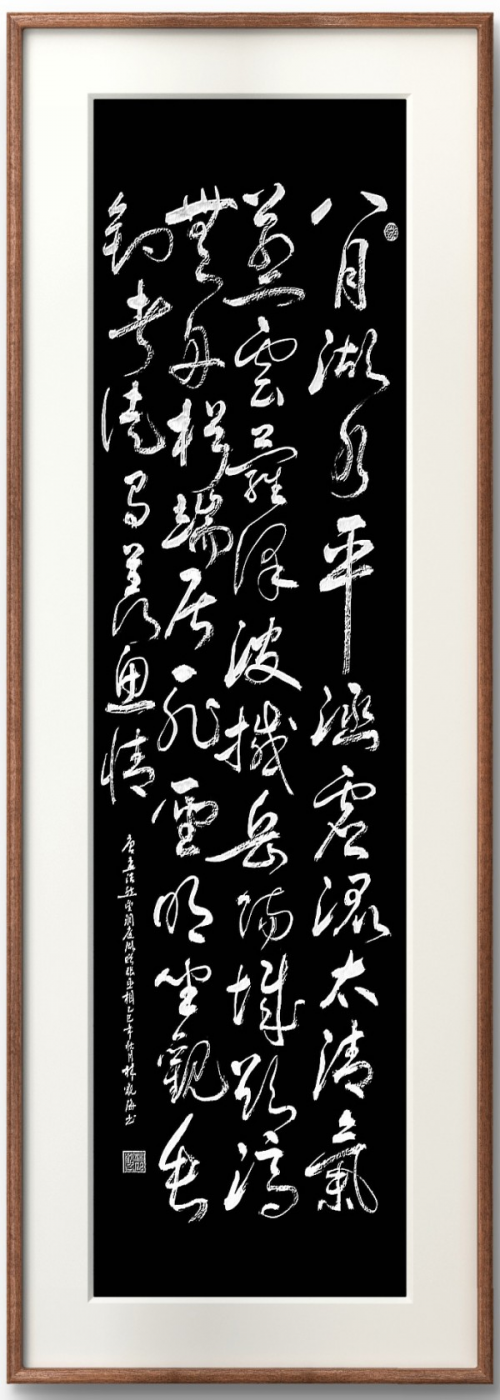 八月湖水平涵虛混太清氣
蒸雲夢澤波撼岳陽城欲濟
無舟楫端居恥聖明坐觀垂
釣者徒有羨魚情
唐孟浩然望洞庭湖贈張丞相乙巳年秋月林海書